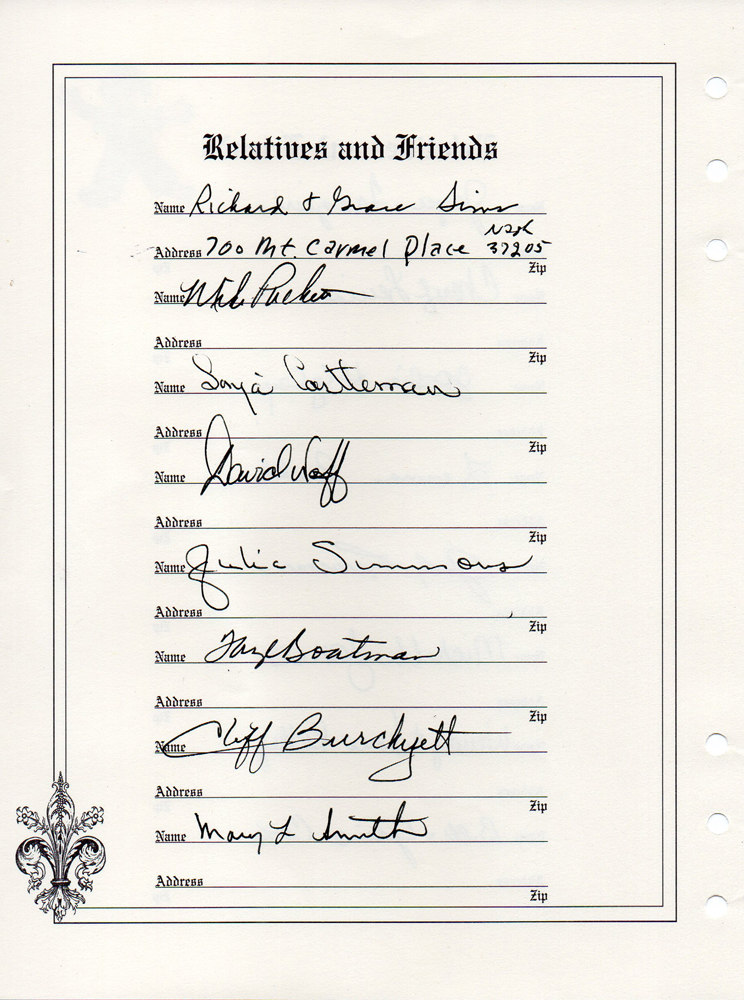 Relatives and Friends
Name Richard & Grace Sims
Nash
Address 700 Mt. Carmel Place 37205
Zip
Name
Address
Zip
Name Sonya Castleman
Address
Zip
Name David Naff
Address
Zip
Name Julia Simmons
Address
Zip
Name Faye Boatman
Address
Zip
Name Cliff Burchyett
Address
Zip
Name Mary L Smith
Address
Zip